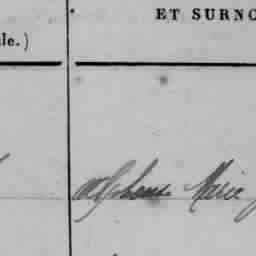 ET SURNO
le.)
Alphonse Marie